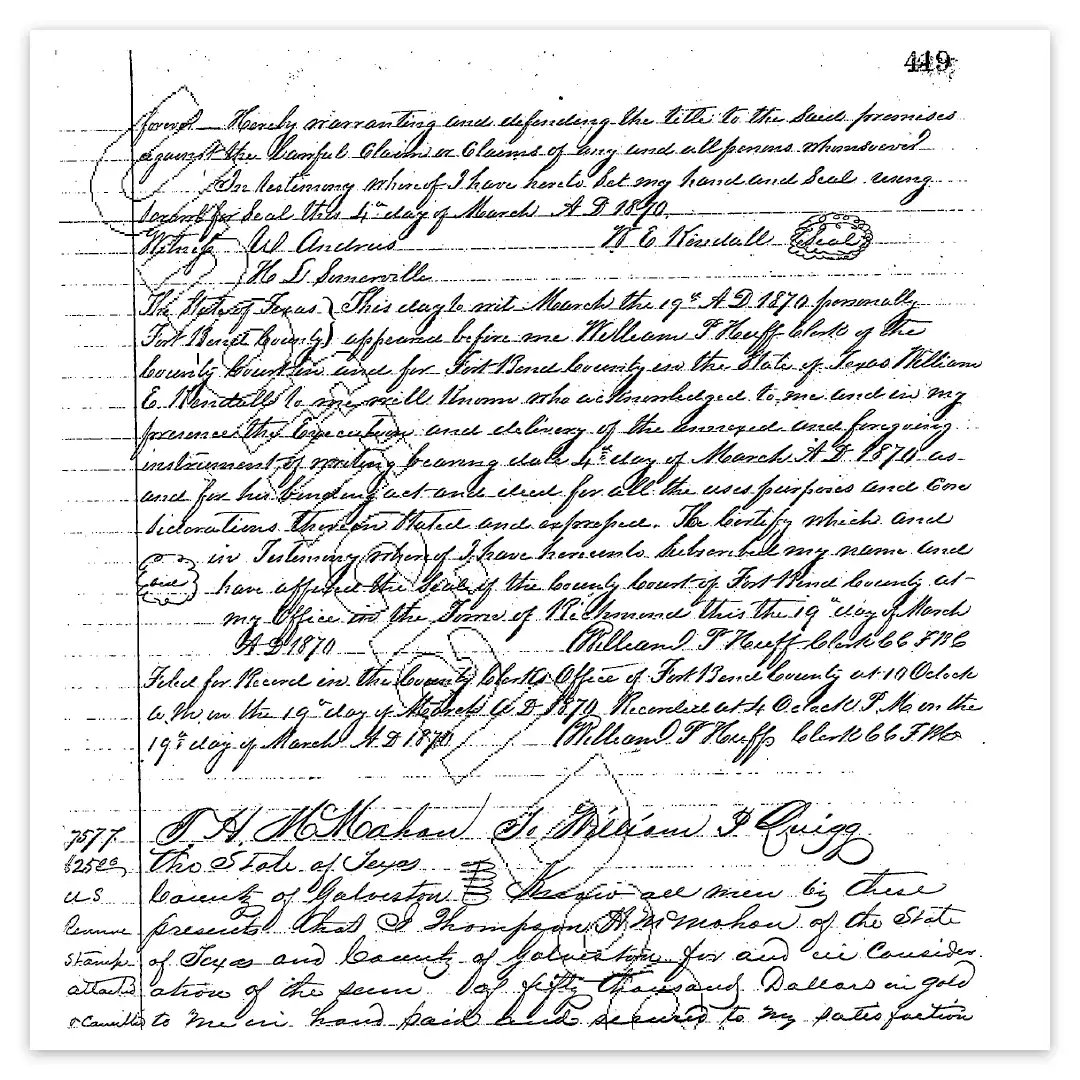 449
forever — Hereby warranting and defending the title to the Said premises
against the Lawful Claim or Claims of any and all persons whomsoever
In testimony whereof I have hereto Set my hand and Seal using
Scrawl for Seal this 4th day of March A D 1870
Witness W Andrus W E Kendall Seal
H L Somerville
The State of Texas ) This day to wit March the 19th A D 1870 personally
Fort Bend County ) appeared before me William P Huff Clerk of the
County Court in and for Fort Bend County in the State of Texas William
E. Kendall to me well Known who acknowledged to me and in my
presence the Execution and delivery of the annexed and foregoing
instrument of writing bearing date 4th day of March A D 1870 as
and for his binding act and deed for all the uses purposes and Con
siderations therein Stated and expressed. To Certify which and
in Testimony whereof I have hereunto Subscribed my name and
Seal have affixed the Seal of the County Court of Fort Bend County at
my Office in the Town of Richmond this the 19th day of March
A D 1870 William P Huff Clerk CC F B C
Filed for Record in the County Clerks Office of Fort Bend County at 10 Oclock
A. M on the 19th day of March A D 1870 Recorded at 4 Oclock P. M. on the
19th day of March A D 1870 William P Huff Clerk CC F B C
T. H. McMahan To William P Quigg
7577
the State of Texas
County of Galveston Know all men by these
U S
presents that I Thompson H McMahan of the State
Revenue
of Texas and County of Galveston for and in Consider
Stamp
ation of the sum of fifty thousand Dollars in gold
attached
to me in hand paid and secured to my satisfaction
& Cancelled